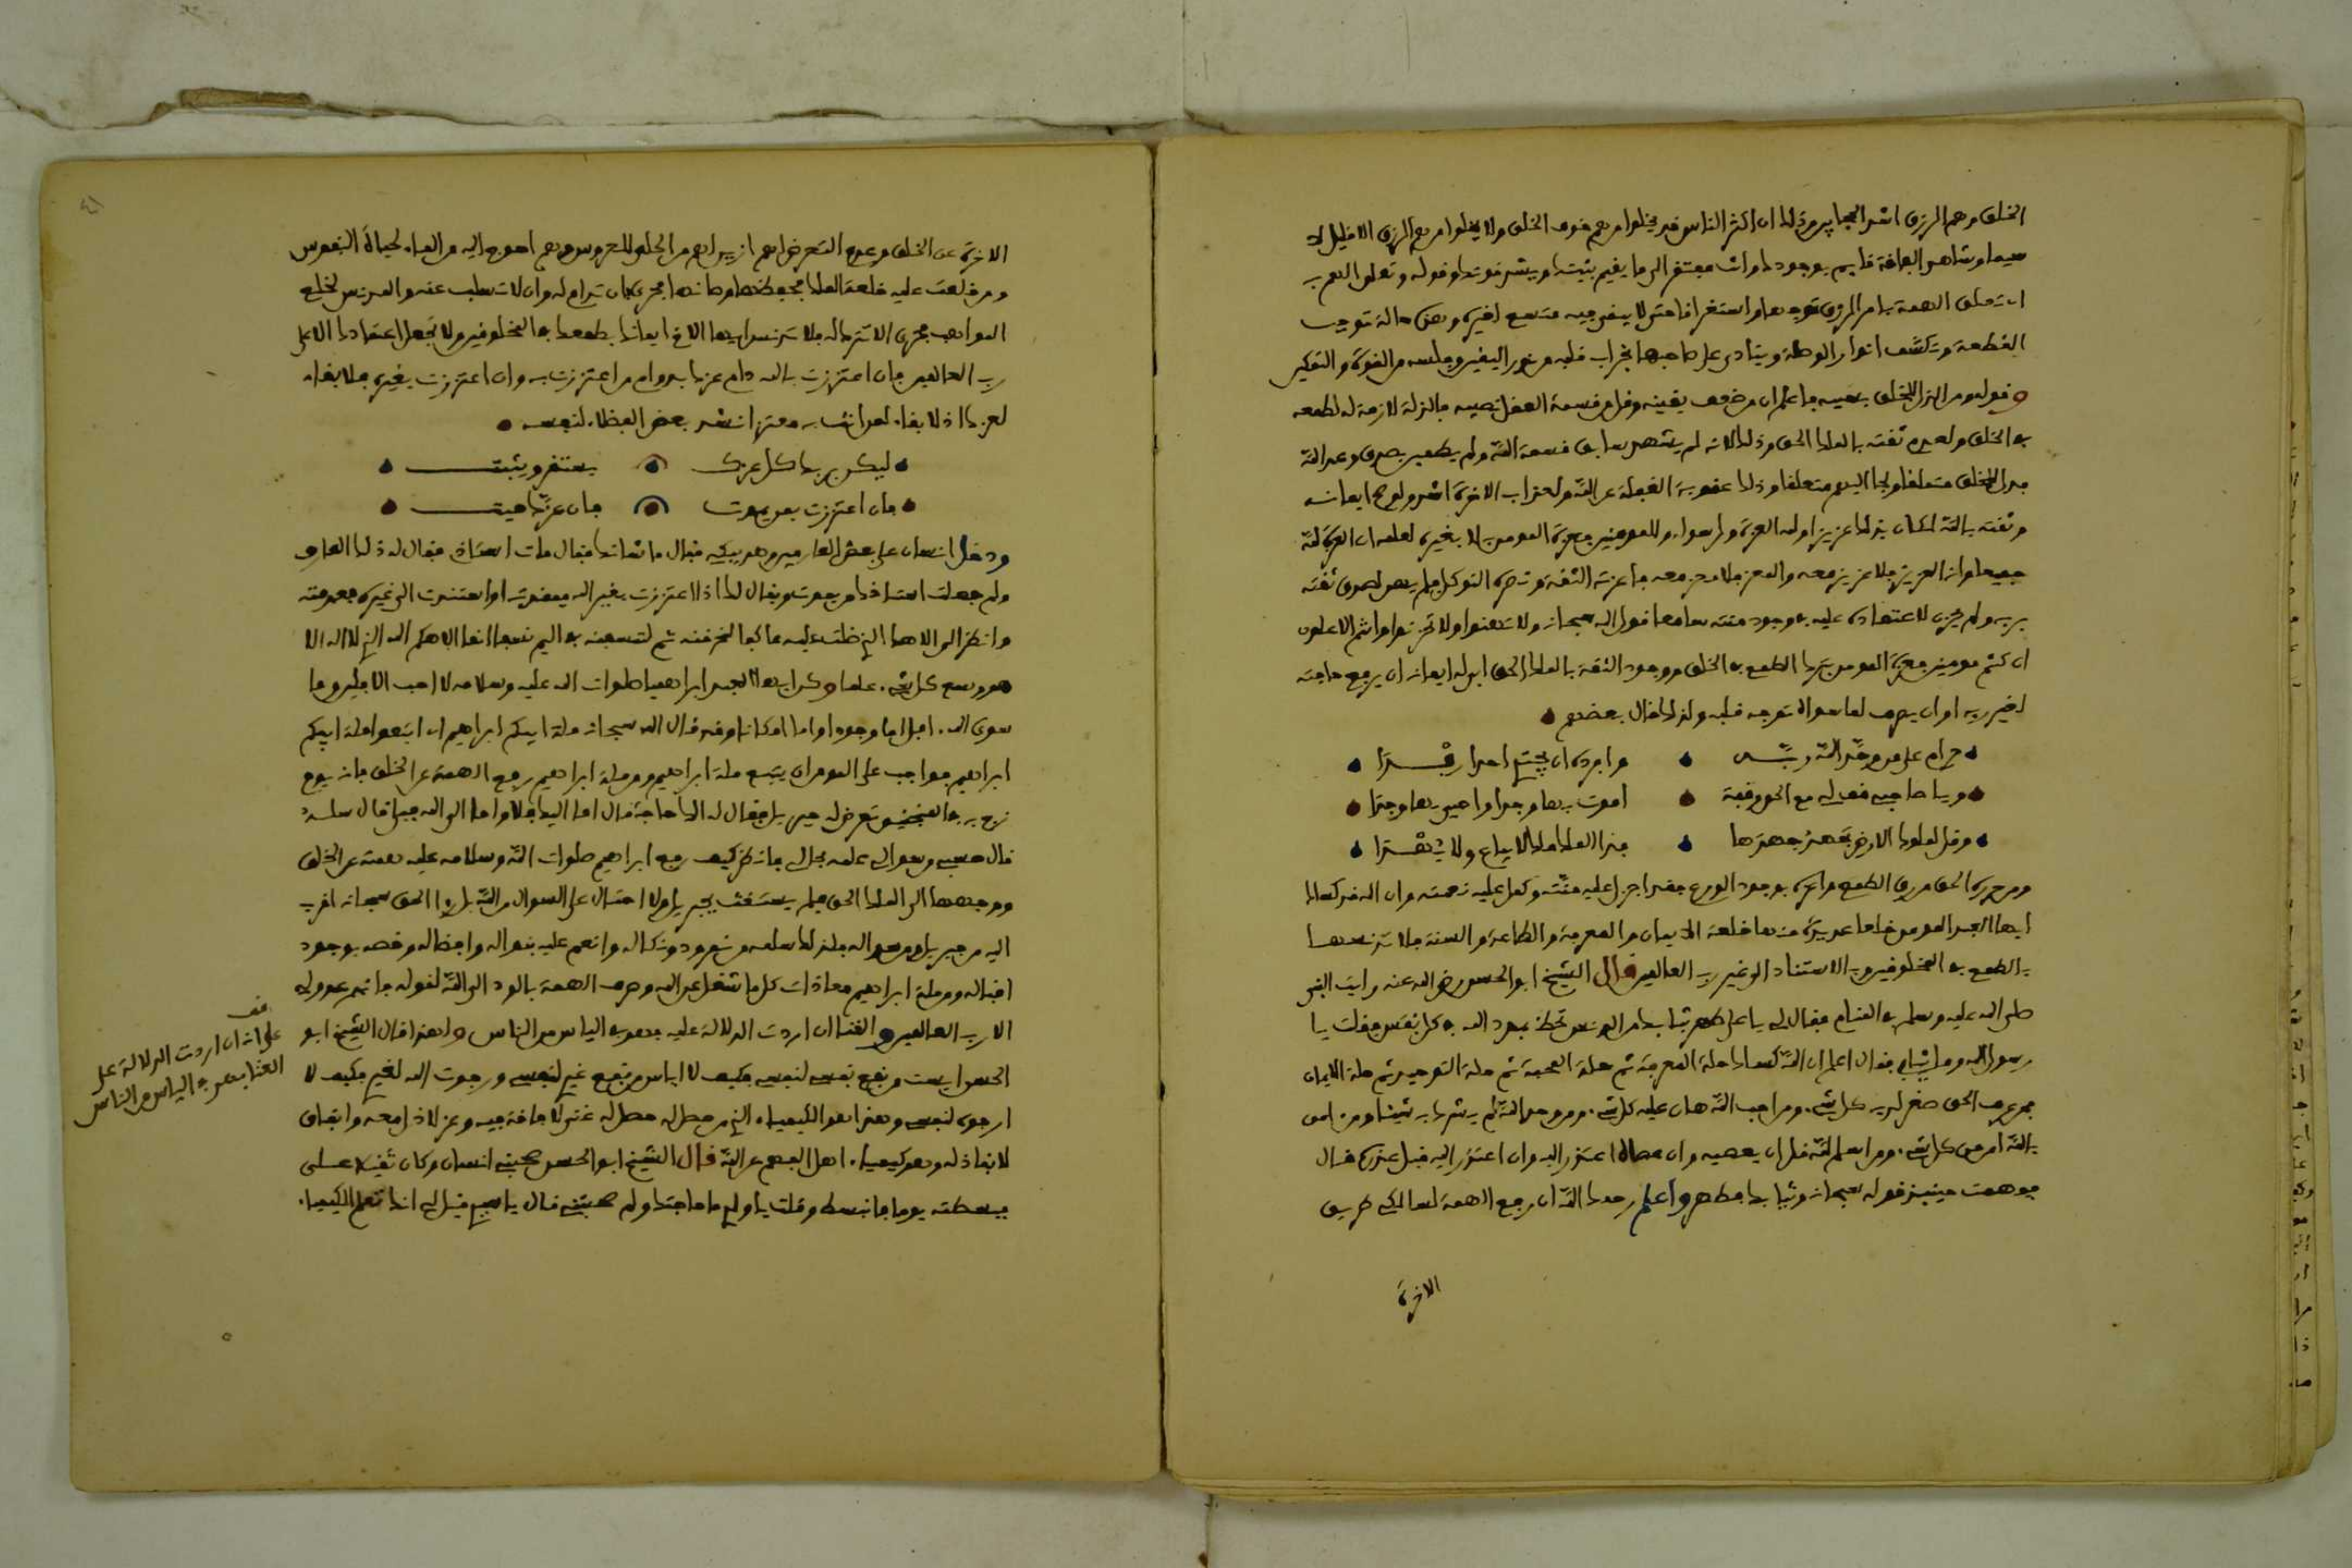 الخلق وهم الرزق اشد الحجابين وذلك ان اكثر الناس قد يخلوا من هم خوف الخلق ولا يخلوا من هم الرزق الا قليل لا
سيما وشاهد الفاقة قايم بوجودك وانت مفتقر الى ما يقيم بنيتك ويشد قوتك وقوله وتعلق الهم به
ان تعلق الهمة بامر الرزق توجها واستغراقا حتى لا يبقى فيه متسع لغيره وهي حالة توجب
القطعة وتكشف انوار الوصلة وينادى على صاحبها بخراب قلبه من نور اليقين وفلسه من القوة والتمكين
وقوله ومن انزال الخلق نصيبه فاعلم ان من ضعف يقينه وقل من قسمة العقل نصيبه فالزلة لازمة له لطمعه
في الخلق ولعدم ثقته بالملك الحق وذلك لانه لم يشهد سابق قسمة الله ولم يظهر بصدق وعد الله
فذل للخلق متملقا ولجا اليهم متعلقا وذلك عقوبة الغفلة عن الله ولعذاب الاخرة اشد ولو صح ايمانه
وثقته بالله لكان بذلك عزيزا ولله العزة ولرسوله وللمومنين فعزة المومن بالله لا بغيره لعلمه ان العزة لله
جميعا وانه العزيز فلا عزيز معه والمعز فلا معز معه فاعزته الثقة ونصره التوكل فلم يهن لصدق ثقته
بربه ولم يحزن لاعتماده عليه في وجود مننه سامعا قول الله سبحانه ولا تهنوا ولا تحزنوا وانتم الاعلون
ان كنتم مومنين فعزة المومن بترك الطمع في الخلق ووجود الثقة بالملك الحق ابى له ايمانه ان يرفع حاجته
لغير ربه او ان يصرف لما سواه توجه قلبه ولذلك قال بعضهم
حرام على من وحد الله ربه وافرده ان يجتدي احدا رفدا
ويا صاحبي قف لي مع الحق وقفة اموت بها وجدا واحيى بها وجدا
وقل لملوك الارض تجهد جهدها فذا الملك ملك لا يباع ولا يهدا
ومن حرره الحق من رق الطمع واعزه بوجود الورع فقد اجزل عليه منته وكمل عليه نعمته وان الله قد كساك
ايها العبد المومن خلعا عديدة منها خلعة الايمان والمعرفة والطاعة والسنة فلا تدنسها
بالطمع في المخلوقين وبالاستناد الى غير رب العالمين قال الشيخ ابو الحسن رضي الله عنه رايت النبي
صلى الله عليه وسلم في المنام فقال لي يا علي طهر ثيابك من الدنس تحظ بمدد الله في كل نفس فقلت يا
رسول الله وما ثيابي فقال اعلم ان الله كساك حلة المعرفة ثم حلة المحبة ثم حلة التوحيد ثم حلة الايمان
فمن عرف الحق صغر لديه كل شيء ومن احب الله هان عليه كل شيء ومن وحد الله لم يشرك به شيئا ومن امن
بالله امن من كل شيء ومن اسلم لله قل ان يعصيه وان عصاه اعتذر اليه وان اعتذر اليه قبل عذره قال
ففهمت حينيذ قوله سبحانه وثيابك فطهر واعلم رحمك الله ان رفع الهمة لسالكي طريق
الاخرة
الاخرة عن الخلق وعدم التعرض لهم ازين لهم من الحلي للعروس وهم احوج اليه من الماء لحياة النفوس
ومن خلعت عليه خلعة الملك فحفظها وصانها فحرى بان تدام له وان لا تسلب عنه والمدنس لخلع
المواهب فحرى الا تترك له فلا تدنس ايها الاخ ايمانك بطمعك في المخلوقين ولا تجعل اعتمادك الا على
رب العالمين فان اعتززت بالله دام عزك بدوام من اعتززت به وان اعتززت بغيره فلا بقاء
لعزك اذ لا بقاء لمن انت به معتز انشد بعض الفضلاء لنفسه
ليكن بربك كل عزك يستقر ويثبت
فان اعتززت بمن يموت فان عزك ميت
ودخل انسان على بعض العارفين وهو يبكي فقال ما شانك فقال مات استاذي فقال له ذلك العارف
ولم جعلت استاذك من يموت ويقال لك اذا اعتززت بغير الله ففقدته او استندت الى غيره فعدمته
وانظر الى الاهك الذي ظلت عليه عاكفا لنحرقنه ثم لننسفنه في اليم نسفا انما الاهكم الله الذي لا اله الا
هو وسع كل شيء علما وكن ايها العبد ابراهيميا صلوات الله عليه وسلامه لا احب الافلين وما
سوى الله افل اما وجودا واما امكانا وقد قال الله سبحانه ملة ابيكم ابراهيم اي اتبعوا ملة ابيكم
ابراهيم فواجب على المومن ان يتبع ملة ابراهيم ومن ملة ابراهيم رفع الهمة عن الخلق فانه يوم
زج به في المنجنيق تعرض له جبريل فقال له الك حاجة قال اما اليك فلا واما الى الله فبلى قال سله
قال حسبي من سوالي علمه بحالي فانظر كيف رفع ابراهيم صلوات الله وسلامه عليه همته عن الخلق
ووجهها الى الملك الحق فلم يستغث بجبريل ولا احتال على السوال من الله بل راى الحق سبحانه اقرب
اليه من جبريل ومن سواله فلذلك سلمه من نمرود ونكاله وانعم عليه بنواله وافضاله وخصه بوجود
اقباله ومن ملة ابراهيم معادات كل ما شغل عن الله وصرف الهمة بالود الى الله لقوله فانهم عدو لي
الا رب العالمين والغنا ان اردت الدلالة عليه فهو في الياس من الناس ولهذا قال الشيخ ابو
الحسن ايست من نفع نفسي لنفسي فكيف لا اياس من نفع غيري لنفسي ورجوت الله لغيري فكيف لا
ارجوه لنفسي وهذا هو الكيمياء الذي من حصل له حصل له غنى لا فاقة فيه وعز لا ذل معه وانفاق
لا نفاد له وهو كيمياء اهل الفهم عن الله قال الشيخ ابو الحسن صحبني انسان وكان ثقيلا علي
فبسطته يوما فانبسط وقلت يا ولدي ما حاجتك ولم صحبتني قال يا سيدي قيل لي انك تعلم الكيميا
قف
على انه ان اردت الدلالة على
الغنا فهو في الياس من الناس